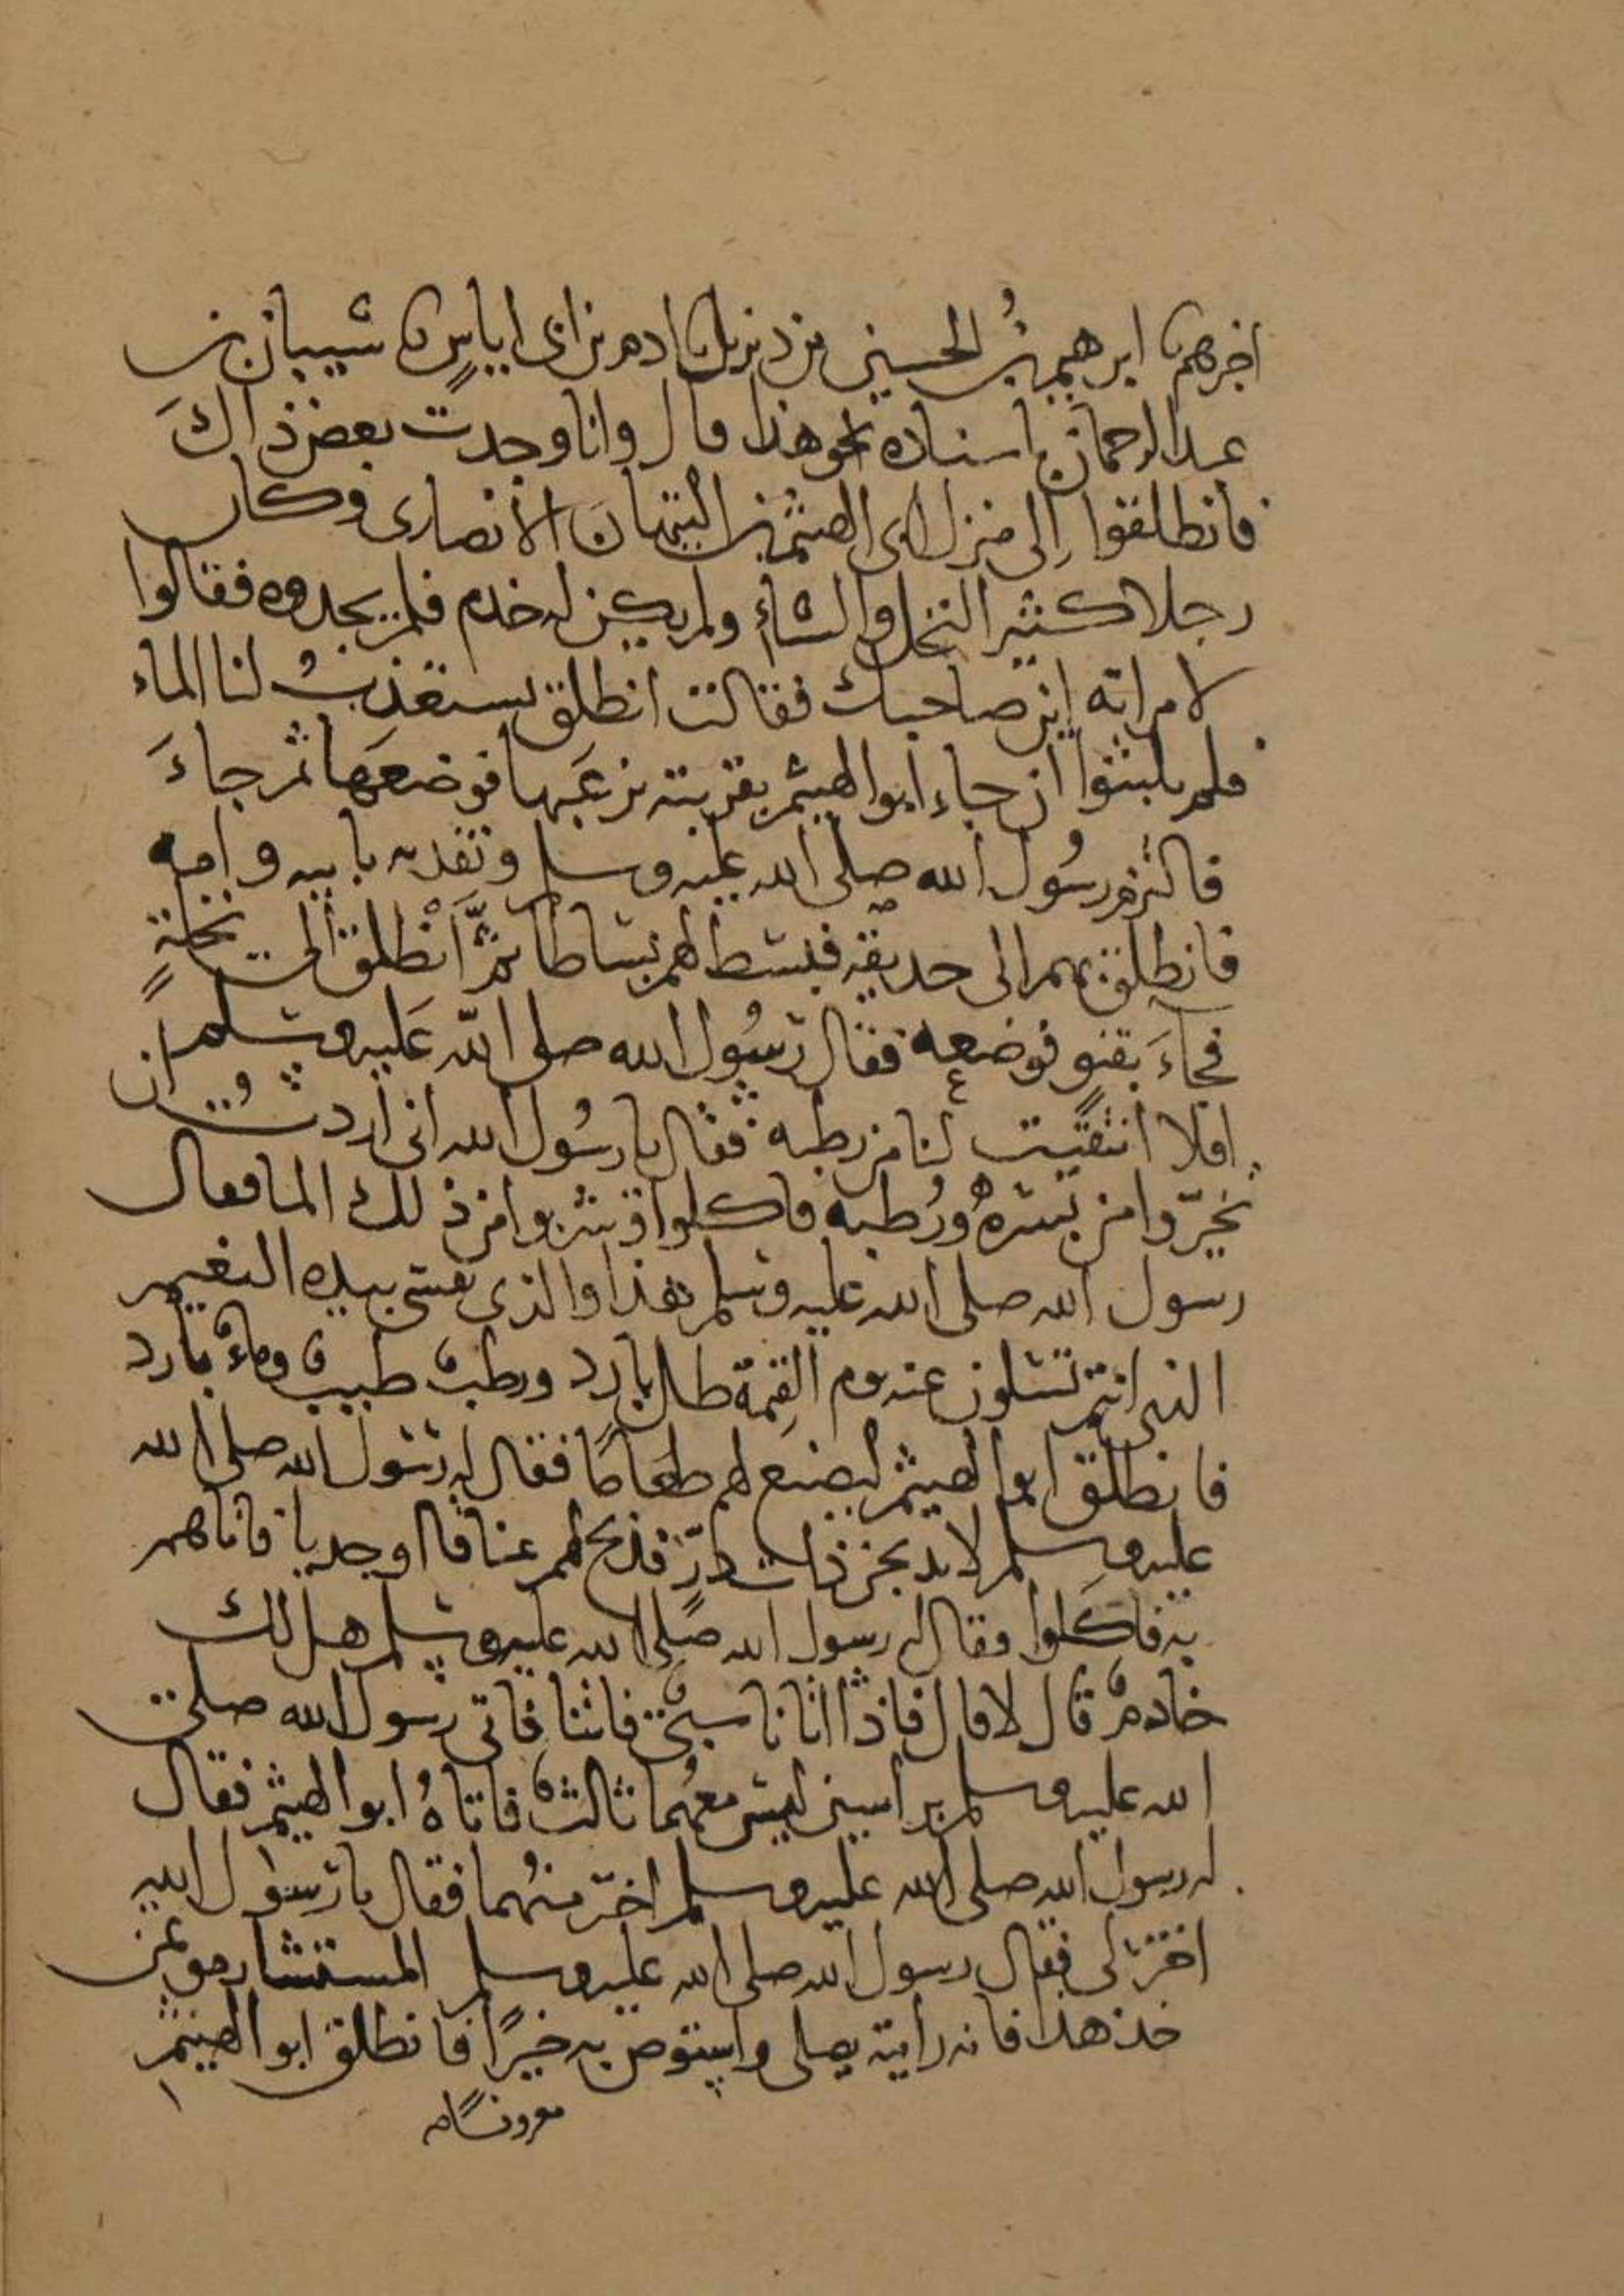 اخبرهم نا ابرهيم بن الحسين بن ديزيل نا ادم بن ابى اياسٍ نا شيبان بن
عبد الرحمان باسناده نحو هذا قال وانا وجدت بعض ذاكَ
فانطلقوا إلى منزل ابى الهيثم بن التيهان الانصارى وكان
رجلا كثير النخل والشاءِ ولم يكن له خدم فلم يجدوه فقالوا
لامراته اين صاحبك فقالت انطلق يستعذبُ لنا الماء
فلم يلبثوا ان جاء ابوا الهيثم بقربته يزعَبها فوضعَها ثم جاءَ
فالتزم رسُول الله صلى الله عليه وسلم وتفديه بابيه وامه
فانطلق بهم الى حديقته فبسط لهم بساطا ثمَّ اَنْطلق الى نخلةٍ
فجاءَ بقنو فوضعه فقال رسُول الله صلى الله عَليه وسلم
افلا انتقيت لنا من رطبه فقال يا رسُول الله انى اردتُ ان
تخيّروا من بسره ورُطبه فاكلوا وشربوا من ذلك الما فقال
رسول الله صلى الله عليه وسلم هذا والذى نفسى بيده النعيم
الذى انتم تسلون عنه يوم القيمة ظل بارد ورطبٌ طيبٌ وماءٌ بارد
فانطلق ابوا الهيثم ليصنع لهم طعامًا فقال له رسُول الله صلى الله
عليه وسلم لا تذبحن ذات درٍّ فذبح لهم عناقا او جديا فاتاهم
به فاكَلوا فقال له رسول الله صلى الله عليه وسلم هل لك
خادمٌ قال لا قال فاذا اتانا سبىٌ فائتنا فاتى رسُول الله صلى
الله عليه وسلم براسين ليس معهُما ثالثٌ فاتاهُ ابوا الهيثم فقال
له رسول الله صلى الله عليه وسلم اختر منهُما فقال يا رسول الله
اختر لى فقال رسول الله صلى الله عليه وسلم المستشار موتمن
خذ هذا فانه رايته يصلى واستوص به خيرًا فانطلق ابوا الهيثم
معروفًا